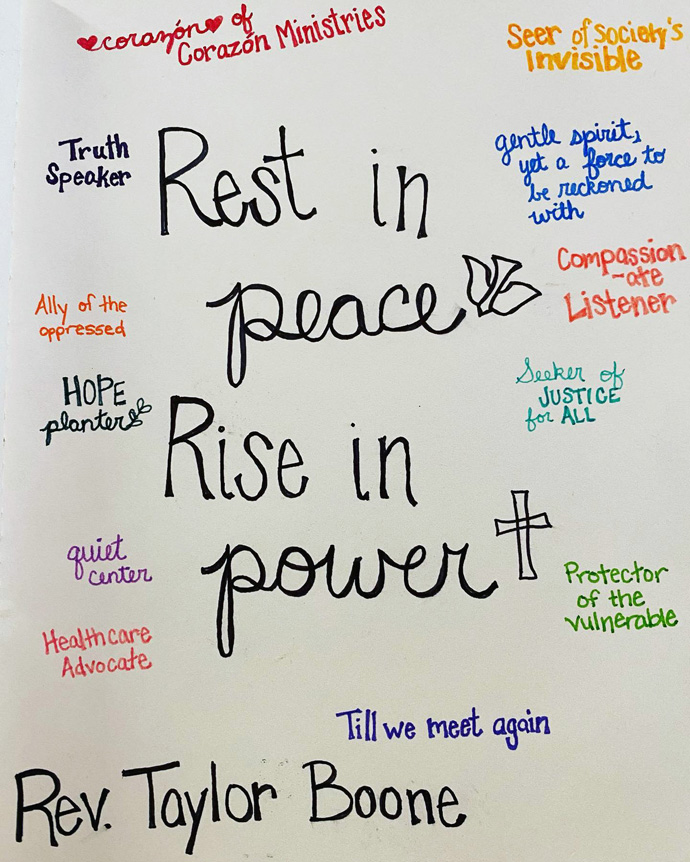 corazón of
Corazón Ministries
Seer of Society's
Invisible
Truth
Speaker
Rest in
peace
gentle spirit,
yet a force to
be reckoned
with
Compassion
-ate
Listener
Ally of the
oppressed
HOPE
planter
Seeker of
JUSTICE
for ALL
Rise in
power
quiet
center
Protector
of the
vulnerable
Healthcare
Advocate
Till we meet again
Rev. Taylor Boone